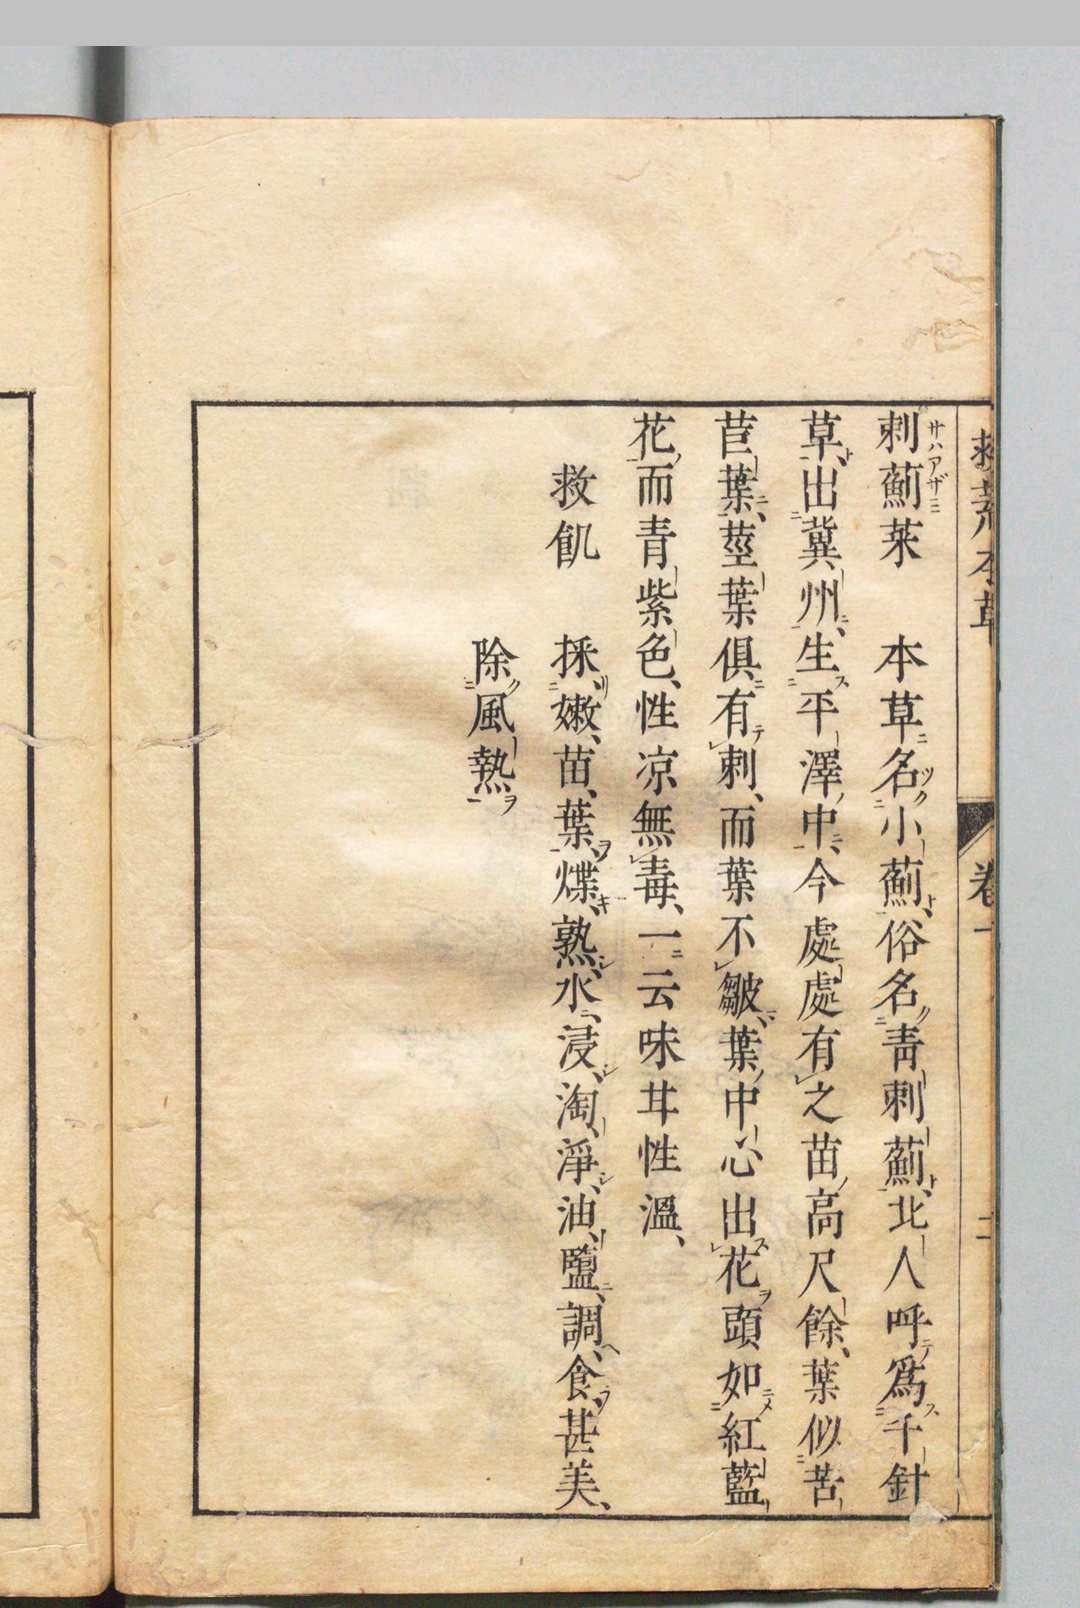 救荒本草　卷一
刺薊菜　本草名小薊俗名靑刺薊北人呼爲千針
サハアザミ
草出冀州生平澤中今處處有之苗高尺餘葉似苦
苣葉莖葉俱有刺而葉不皺葉中心出花頭如紅藍
花而青紫色性凉無毒一云味甘性溫
救飢　採嫩苗葉煠熟水浸淘淨油鹽調食甚美
除風熱